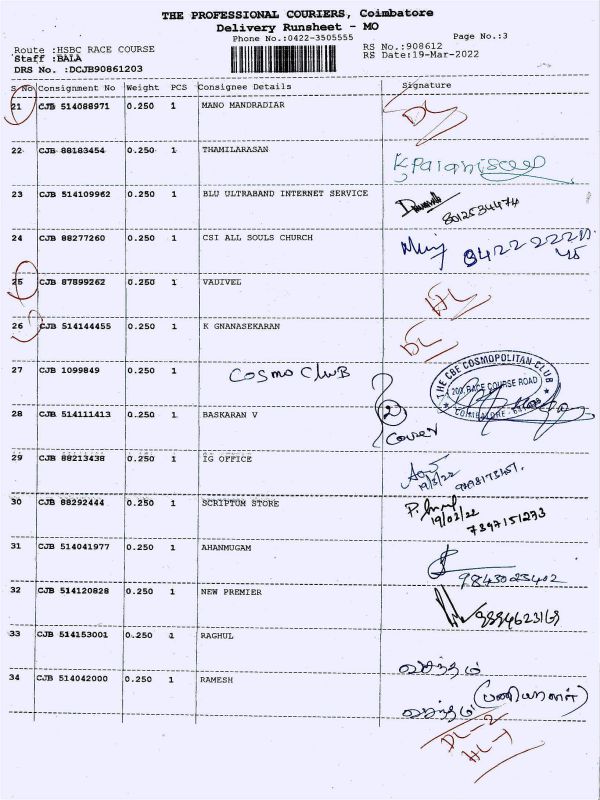 THE PROFESSIONAL COURIERS, Coimbatore
Delivery Runsheet - MO
Phone No.:0422-3505555
Page No.:3
Route :HSBC RACE COURSE
RS No.:908612
Staff :BALA
RS Date:19-Mar-2022
DRS No. :DCJB90861203
S No Consignment No Weight PCS Consignee Details Signature
21 CJB 514088971 0.250 1 MANO MANDRADIAR DL
22 CJB 88183454 0.250 1 THAMILARASAN
23 CJB 514109962 0.250 1 BLU ULTRABAND INTERNET SERVICE
8012534474
24 CJB 88277260 0.250 1 CSI ALL SOULS CHURCH
25 CJB 87899262 0.250 1 VADIVEL HL
26 CJB 514144455 0.250 1 K GNANASEKARAN DL
27 CJB 1099849 0.250 1 COSMO CLUB
THE CBE COSMOPOLITAN CLUB
200, RACE COURSE ROAD
COIMBATORE
28 CJB 514111413 0.250 1 BASKARAN V 2
Cover
29 CJB 88213438 0.250 1 IG OFFICE
19/3/22
30 CJB 88292444 0.250 1 SCRIPTUM STORE
19/03/22
7397151273
31 CJB 514041977 0.250 1 AHANMUGAM
9843023402
32 CJB 514120828 0.250 1 NEW PREMIER
33 CJB 514153001 0.250 1 RAGHUL வசந்தம்
34 CJB 514042000 0.250 1 RAMESH (பணியாளர்)
வசந்தம்
DL-2
HL-1